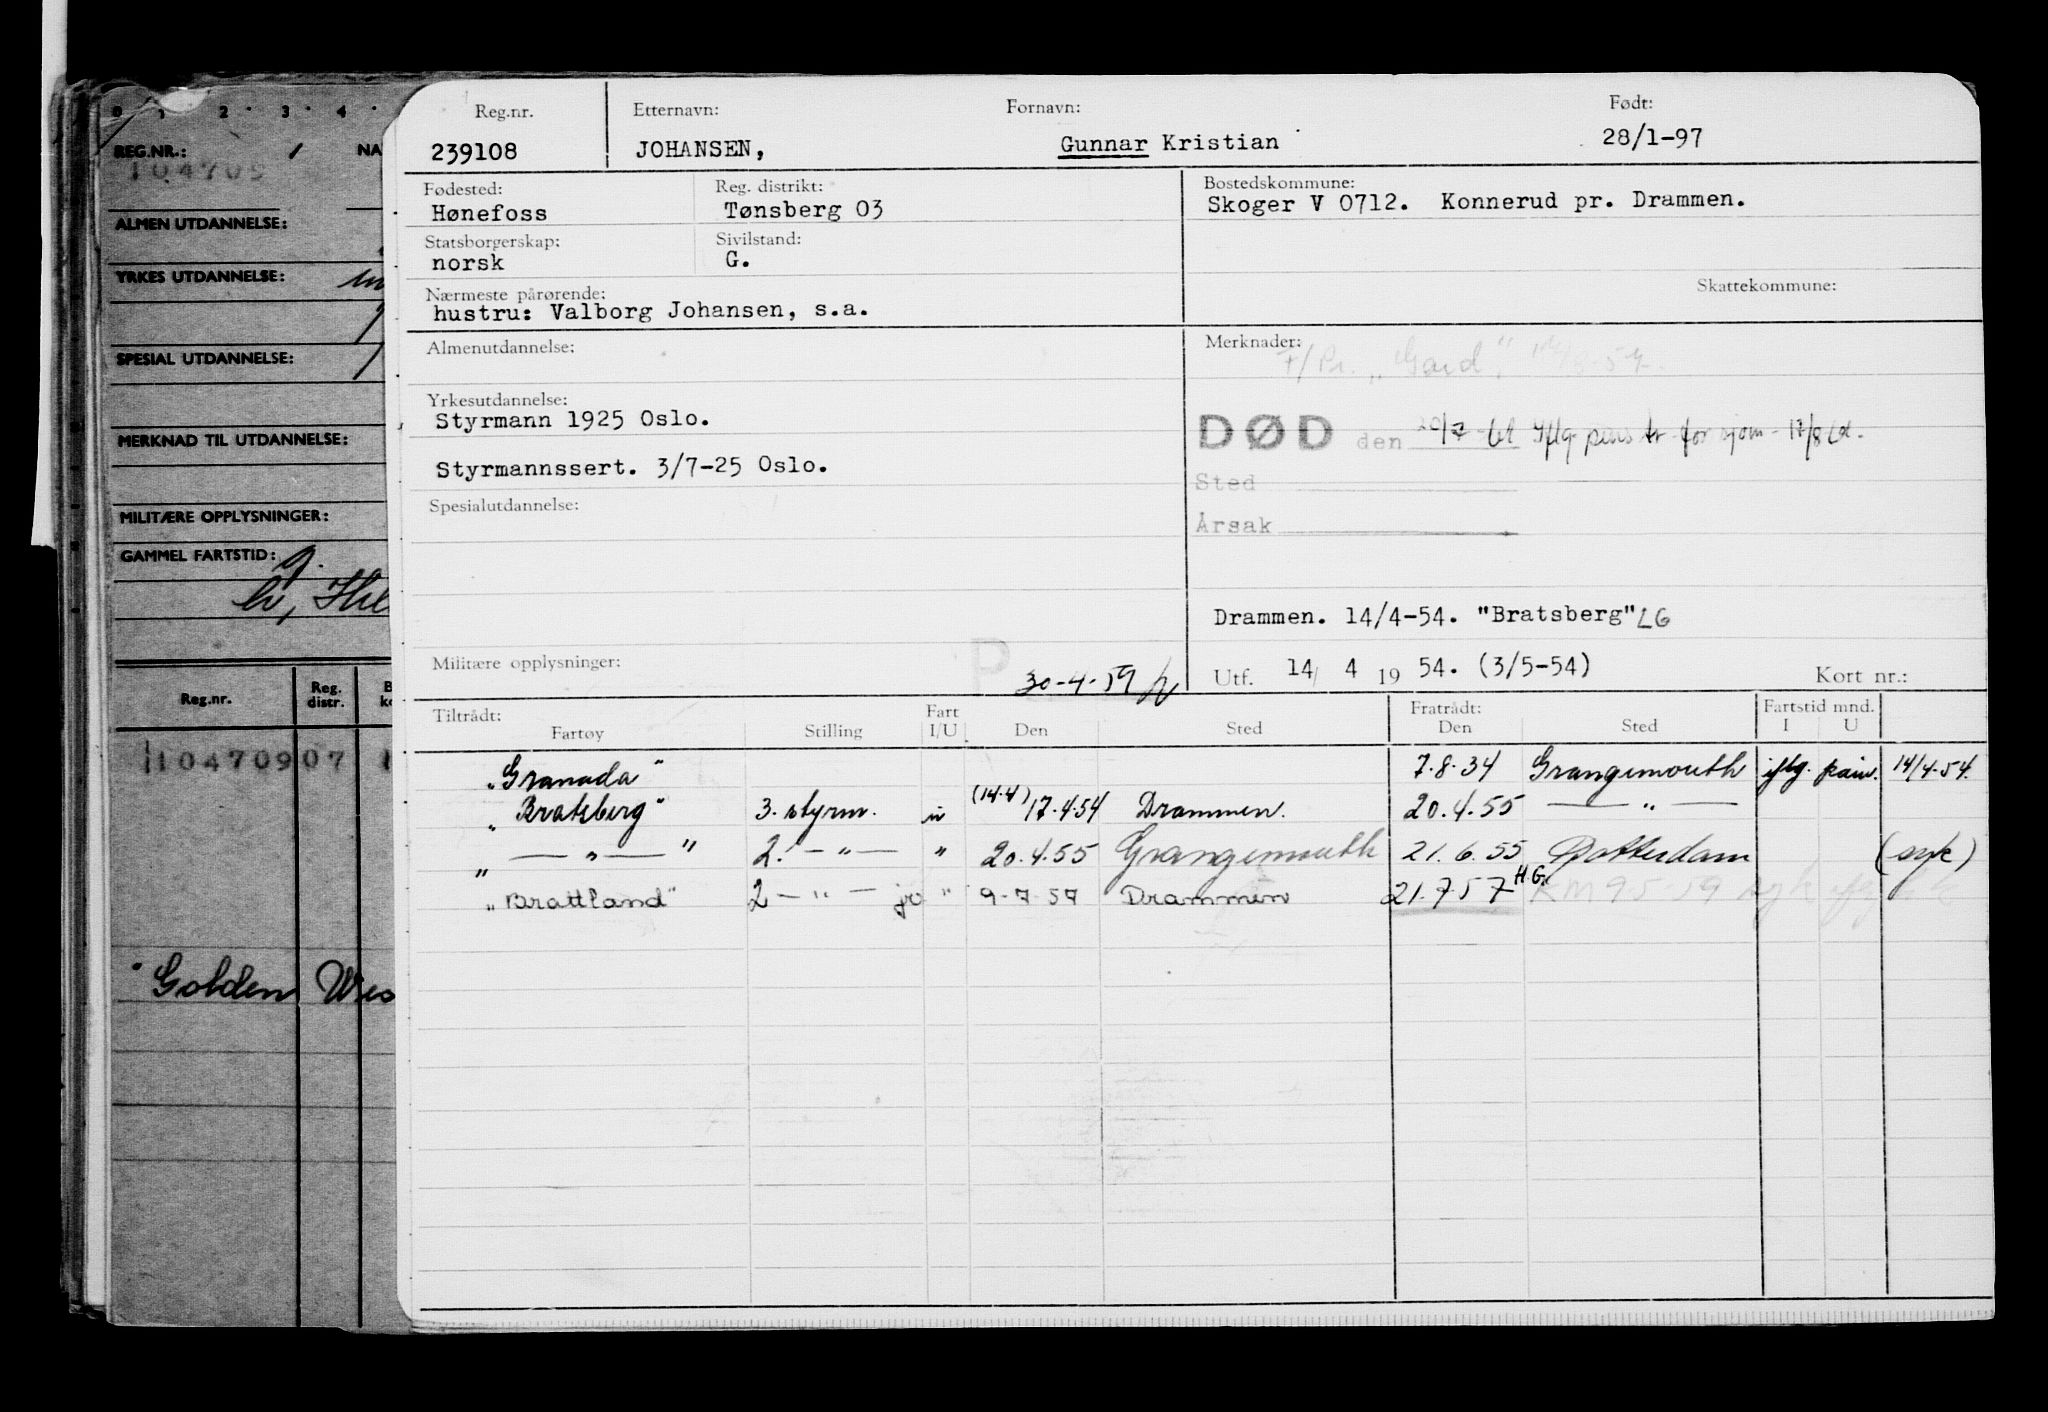 0 1 2 3 4
REG.NR.: NA
104709
ALMEN UTDANNELSE:
YRKES UTDANNELSE:
SPESIAL UTDANNELSE:
MERKNAD TIL UTDANNELSE:
MILITÆRE OPPLYSNINGER:
GAMMEL FARTSTID:
Reg.nr. Reg. distr.
110470907
Golden Wes
Reg.nr. Etternavn: Fornavn: Født:
239108 JOHANSEN, Gunnar Kristian 28/1-97
Fødested: Reg. distrikt: Bostedskommune:
Hønefoss Tønsberg 03 Skoger V 0712. Konnerud pr. Drammen.
Statsborgerskap: Sivilstand:
norsk G.
Nærmeste pårørende: Skattekommune:
hustru: Valborg Johansen, s.a.
Almenutdannelse: Merknader:
F/Pr. "Gard",
Yrkesutdannelse:
Styrmann 1925 Oslo.
DØD den 20/7
Styrmannssert. 3/7-25 Oslo.
Sted
Spesialutdannelse:
Årsak
Drammen. 14/4-54. "Bratsberg" LG
Militære opplysninger: P 30-4-59
Utf. 14/ 4 19 54. (3/5-54) Kort nr.:
Tiltrådt: Fart Fratrådt: Fartstid mnd.
Fartøy Stilling I/U Den Sted Den Sted I U
"Granada" 7.8.34 Grangemouth iflg. 14/4.54.
"Bratsberg" 3. styrm. u (14.4) 17.4.54 Drammen. 20.4.55 — " —
" — " — " 2. — " — " 20.4.55 Grangemouth 21.6.55 Rotterdam (syk)
"Brattland" 2 — " — jr. " 9-7-57 Drammen 21.7.57 H.G. KM 9-5-59